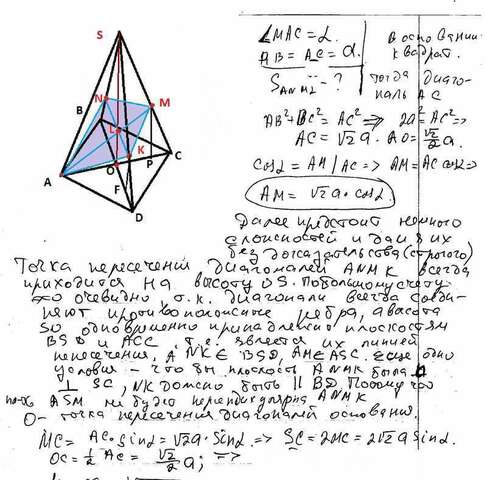 S
N
M
B
L
K
A
O
P
C
F
D
∠MAC = α.
AB = AC = a.
S ANMK - ?
AB²+BC² = AC² => 2a² = AC² =>
AC = √2 a. AO = √2/2 a.
cosα = AM / AC => AM = AC cosα =>
AM = √2 a · cosα.
в основании
квадрат.
тогда диаго-
наль AC
Далее предстоит немного
сложностей и дам я их
без доказательства (строгого)
Точка пересечения диагоналей ANMK всегда
приходится на высоту OS. По большому счету
это очевидно, т.к. диагонали всегда соеди-
няют противоположные ребра, а высота
SO одновременно принадлежит плоскостям
BSD и ASC, т.е. является их линией
пересечения, а NK ∈ BSD, AM ∈ ASC. Еще одно
условие - чтобы плоскость ANMK была
⊥ SC, NK должно быть || BD. Потому что
ASM не будет перпендикулярна ANMK
O - точка пересечения диагоналей основания.
MC = AC · sinα = √2 a · sinα. => SC = 2MC = 2√2 a sinα.
OC = 1/2 AC = √2/2 a; =>